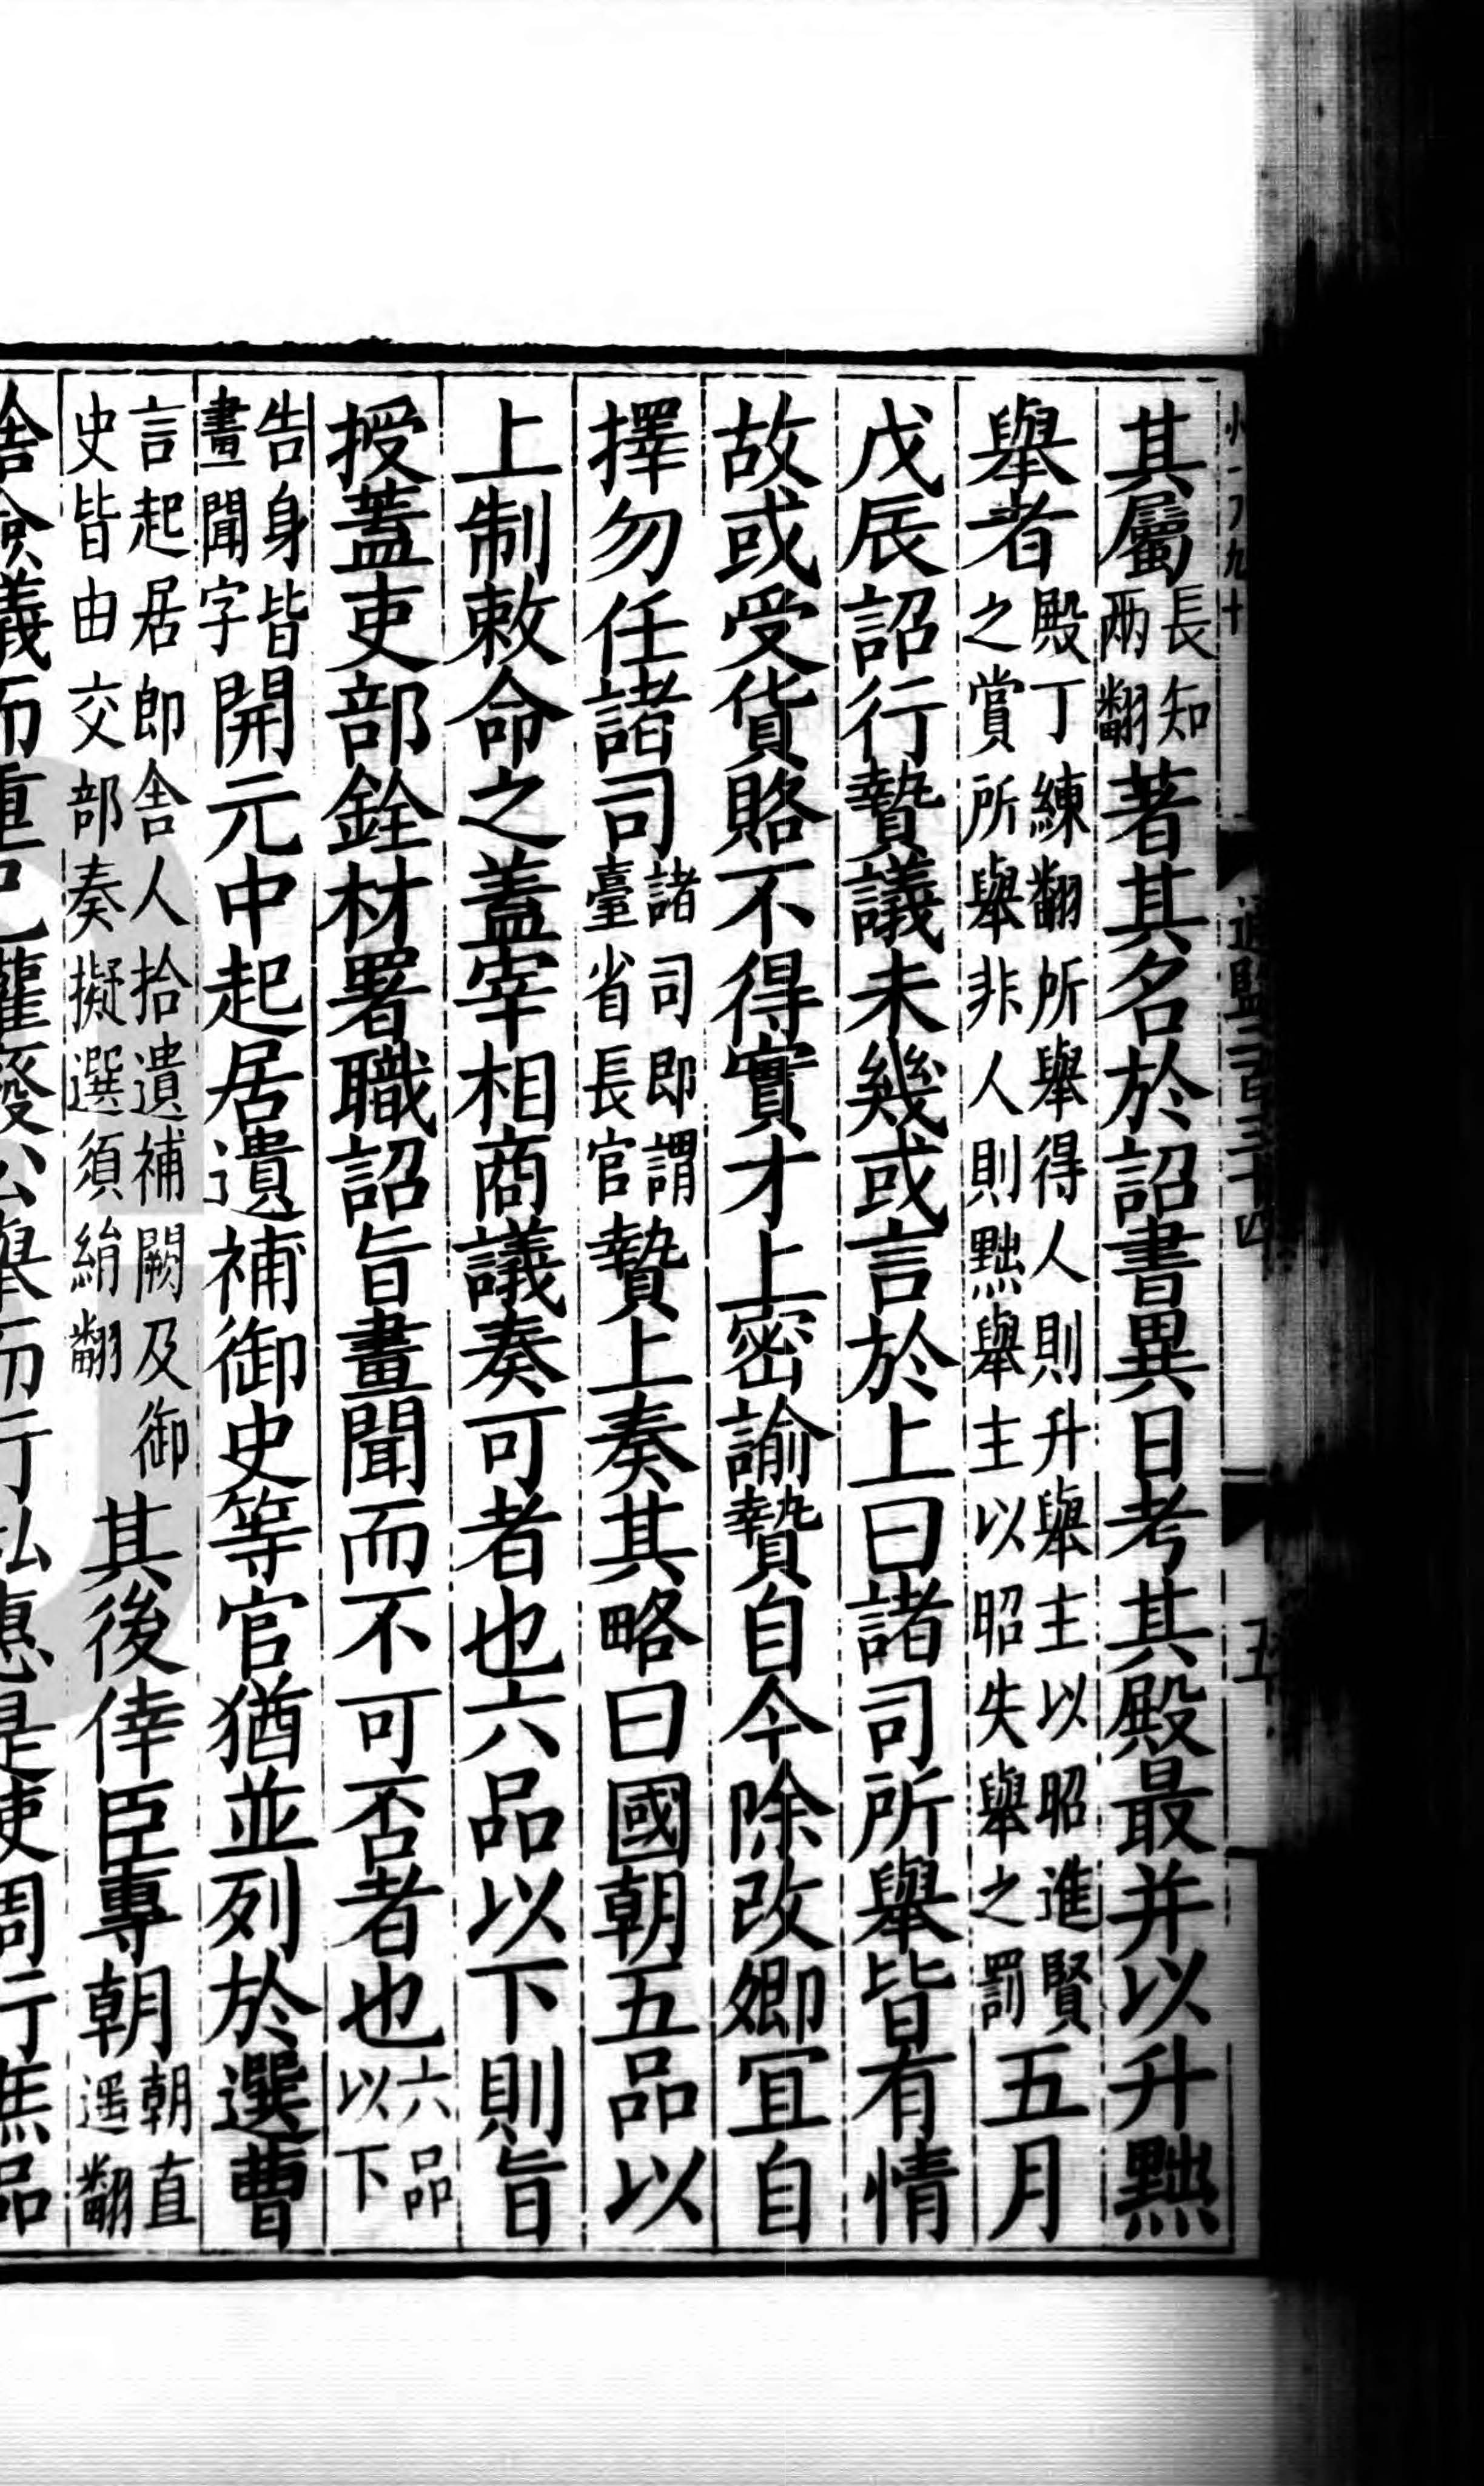 其屬長知兩翻著其名於詔書異日考其殿最并以升黜
舉者殿丁練翻所舉得人則升舉主以昭進賢之賞所舉非人則黜舉主以昭失舉之罰五月
戊辰詔行贄議未幾或言於上曰諸司所舉皆有情
故或受貨賂不得實才上密諭贄自今除改卿宜自
擇勿任諸司諸司即謂臺省長官贄上奏其略曰國朝五品以
上制敕命之蓋宰相商議奏可者也六品以下則旨
授蓋吏部銓材署職詔旨畫聞而不可否者也六品以下
告身皆畫聞字開元中起居遺補御史等官猶並列於選曹
言起居郎舍人拾遺補闕及御史皆由交部奏擬選須絹翻其後倖臣專朝朝直遥翻
舍僉議而重己權廢公舉而行私惠是使周行庶品